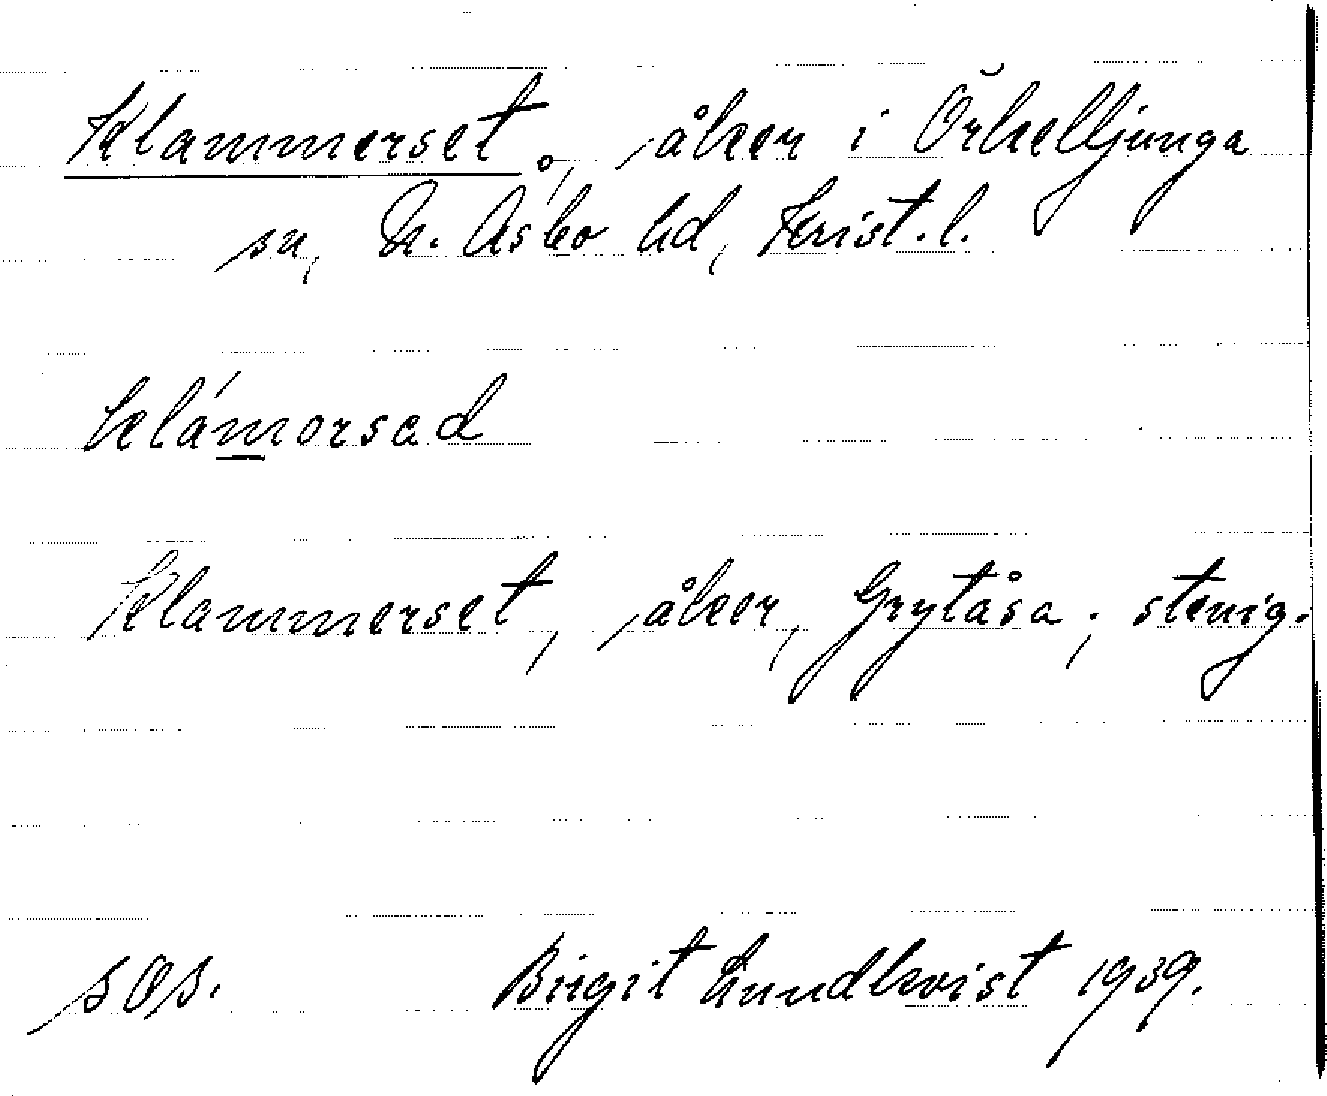 Klammerset, åker i Örkelljunga
sn, N. Åsbo hd, Krist. l.
klámorsad
Klammerset, åker, Grytåsa; stenig.
sOs. Birgit Lundkvist 1939.